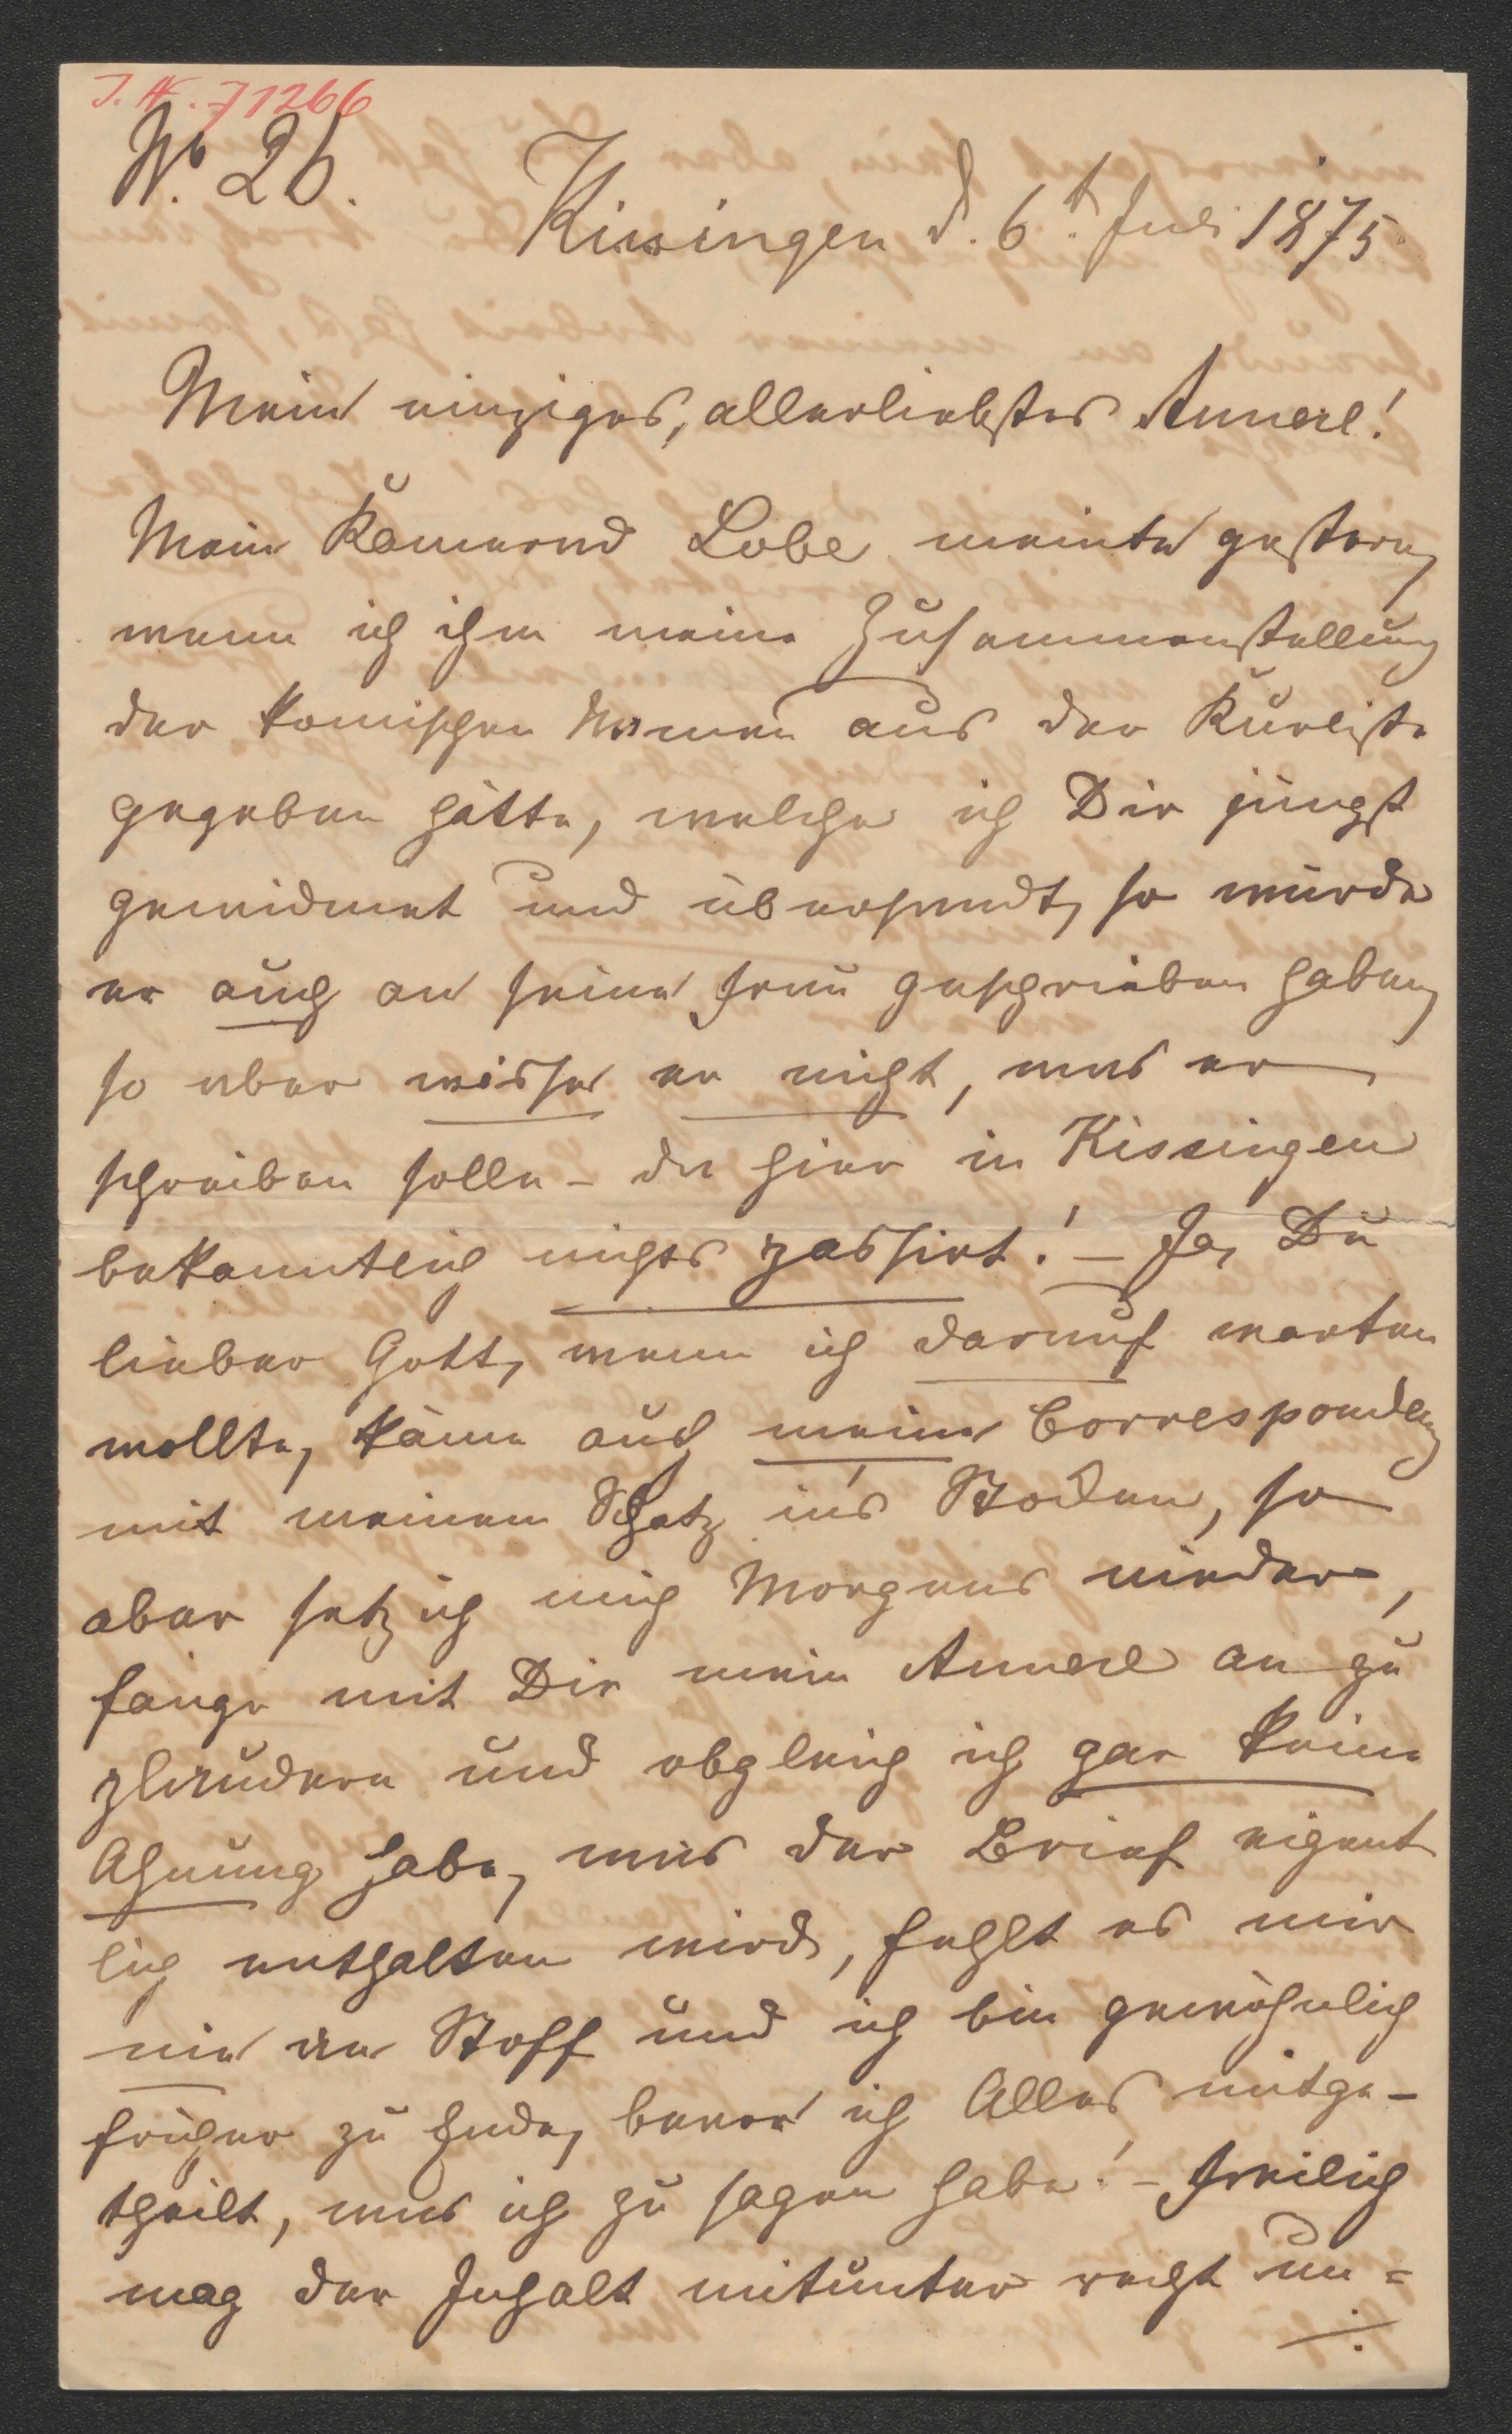 J. N. 71266
No. 26.
Kissingen d. 6t. Juli 1875.
Mein einziges, allerliebstes Annerl!
Mein Kamerad Lobe meinte gestern,
wenn ich ihm meine Zusammenstellung
der komischen Namen aus der Kurliste
gegeben hätte, welche ich Dir jüngst
gewidmet und übersendt, so würde
er auch an seine Frau geschrieben haben,
so aber wisse er nicht, was er
schreiben solle – da hier in Kissingen
bekanntlich nichts passirt! – Ja, Du
lieber Gott, wenn ich darauf warten
wollte, käme auch meine Correspondenz
mit meinem Schatz in's Stocken, so
aber setz ich mich Morgens nieder,
fange mit Dir mein Annerl an zu
plaudern und obgleich ich gar keine
Ahnung habe, was der Brief eigent
lich enthalten wird, fehlt es mir
nie an Stoff und ich bin gewöhnlich
früher zu Ende, bevor ich Alles mitge-
theilt, was ich zu sagen habe! – Freilich
mag der Inhalt mitunter recht un=
./.